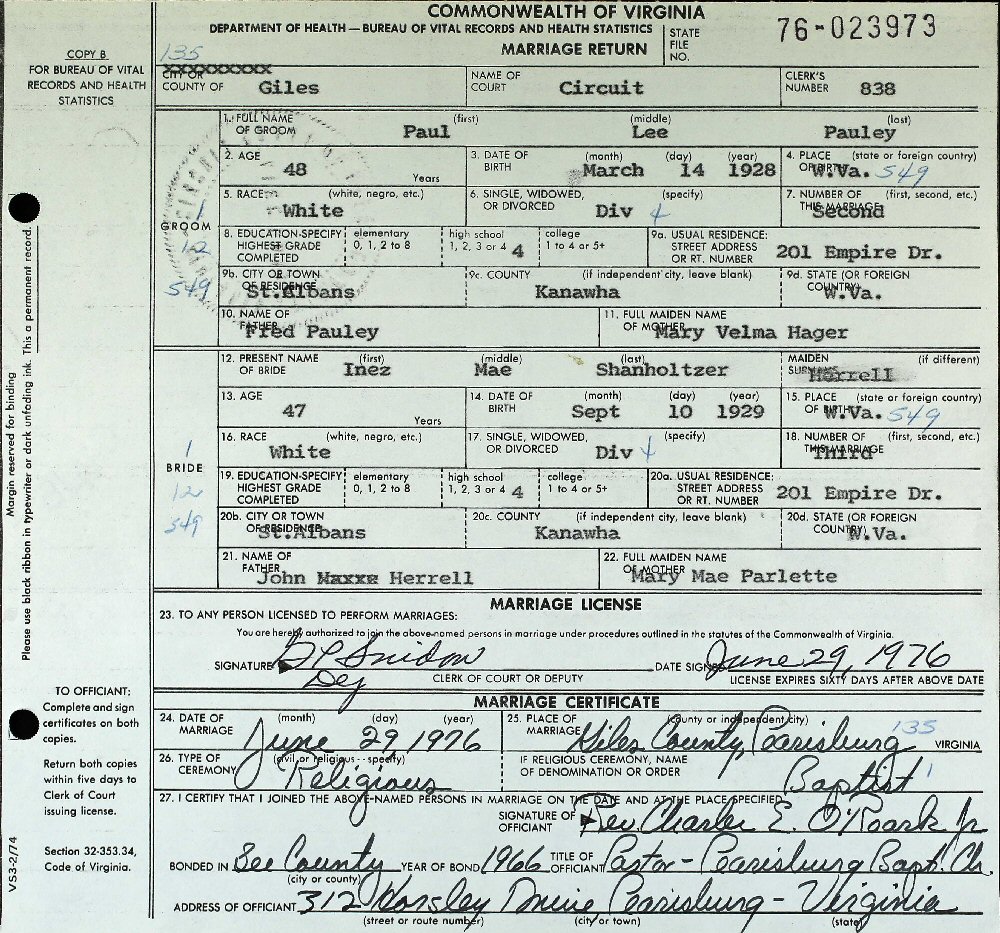 COMMONWEALTH OF VIRGINIA
DEPARTMENT OF HEALTH — BUREAU OF VITAL RECORDS AND HEALTH STATISTICS
MARRIAGE RETURN
STATE FILE NO. 76-023973
COPY B
FOR BUREAU OF VITAL RECORDS AND HEALTH STATISTICS
135
XXXXXXXXXX
CITY OR COUNTY OF Giles
NAME OF COURT Circuit
CLERK'S NUMBER 838
GROOM
1
12
549
1. FULL NAME OF GROOM (first) Paul (middle) Lee (last) Pauley
2. AGE 48 Years
3. DATE OF BIRTH (month) March (day) 14 (year) 1928
4. PLACE OF BIRTH (state or foreign country) W.Va. 549
5. RACE (white, negro, etc.) White
6. SINGLE, WIDOWED, OR DIVORCED (specify) Div 4
7. NUMBER OF THIS MARRIAGE (first, second, etc.) Second
8. EDUCATION-SPECIFY HIGHEST GRADE COMPLETED elementary 0, 1, 2 to 8 high school 1, 2, 3 or 4 4 college 1 to 4 or 5+
9a. USUAL RESIDENCE: STREET ADDRESS OR RT. NUMBER 201 Empire Dr.
9b. CITY OR TOWN OF RESIDENCE St.Albans
9c. COUNTY (if independent city, leave blank) Kanawha
9d. STATE (OR FOREIGN COUNTRY) W.Va.
10. NAME OF FATHER Fred Pauley
11. FULL MAIDEN NAME OF MOTHER Mary Velma Hager
BRIDE
1
12
549
12. PRESENT NAME OF BRIDE (first) Inez (middle) Mae (last) Shanholtzer
MAIDEN SURNAME (if different) Herrell
13. AGE 47 Years
14. DATE OF BIRTH (month) Sept (day) 10 (year) 1929
15. PLACE OF BIRTH (state or foreign country) W.Va. 549
16. RACE (white, negro, etc.) White
17. SINGLE, WIDOWED, OR DIVORCED (specify) Div 4
18. NUMBER OF THIS MARRIAGE (first, second, etc.) Third
19. EDUCATION-SPECIFY HIGHEST GRADE COMPLETED elementary 0, 1, 2 to 8 high school 1, 2, 3 or 4 4 college 1 to 4 or 5+
20a. USUAL RESIDENCE: STREET ADDRESS OR RT. NUMBER 201 Empire Dr.
20b. CITY OR TOWN OF RESIDENCE St.Albans
20c. COUNTY (if independent city, leave blank) Kanawha
20d. STATE (OR FOREIGN COUNTRY) W.Va.
21. NAME OF FATHER John Herrell
22. FULL MAIDEN NAME OF MOTHER Mary Mae Parlette
MARRIAGE LICENSE
23. TO ANY PERSON LICENSED TO PERFORM MARRIAGES:
You are hereby authorized to join the above-named persons in marriage under procedures outlined in the statutes of the Commonwealth of Virginia.
SIGNATURE Snidow DATE SIGNED June 29, 1976
Dep CLERK OF COURT OR DEPUTY LICENSE EXPIRES SIXTY DAYS AFTER ABOVE DATE
MARRIAGE CERTIFICATE
24. DATE OF MARRIAGE (month) June (day) 29 (year) 1976
25. PLACE OF MARRIAGE (county or independent city) Giles County, Pearisburg 135 VIRGINIA
26. TYPE OF CEREMONY (civil or religious - specify) Religious
IF RELIGIOUS CEREMONY, NAME OF DENOMINATION OR ORDER Baptist 1
27. I CERTIFY THAT I JOINED THE ABOVE-NAMED PERSONS IN MARRIAGE ON THE DATE AND AT THE PLACE SPECIFIED
SIGNATURE OF OFFICIANT Rev. Charles E. O'Roark Jr
BONDED IN County YEAR OF BOND 1966 TITLE OF OFFICIANT Pastor - Pearisburg Bapt. Ch.
(city or county)
ADDRESS OF OFFICIANT 312 Drive Pearisburg - Virginia
(street or route number) (city or town) (state)
Margin reserved for binding
Please use black ribbon in typewriter or dark unfading ink. This a permanent record.
TO OFFICIANT:
Complete and sign certificates on both copies.
Return both copies within five days to Clerk of Court issuing license.
Section 32-353.34, Code of Virginia.
VS3-2/74